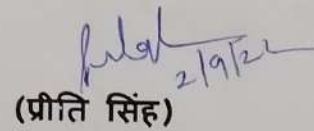 2/9/22
(प्रीति सिंह)